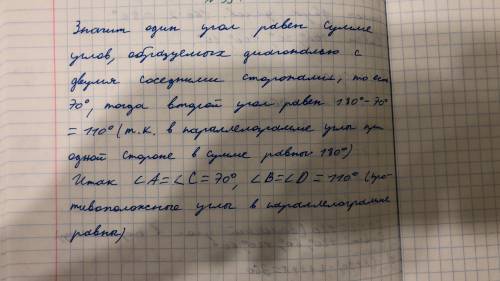 Значит один угол равен сумме
углов, образуемых диагональю с
двумя соседними сторонами, то есть
70°, тогда второй угол равен 180°-70°
= 110° (т.к. в параллелограмме углы при
одной стороне в сумме равны 180°)
Итак ∠A=∠C=70°, ∠B=∠D=110° (про-
тивоположные углы в параллелограмме
равны)